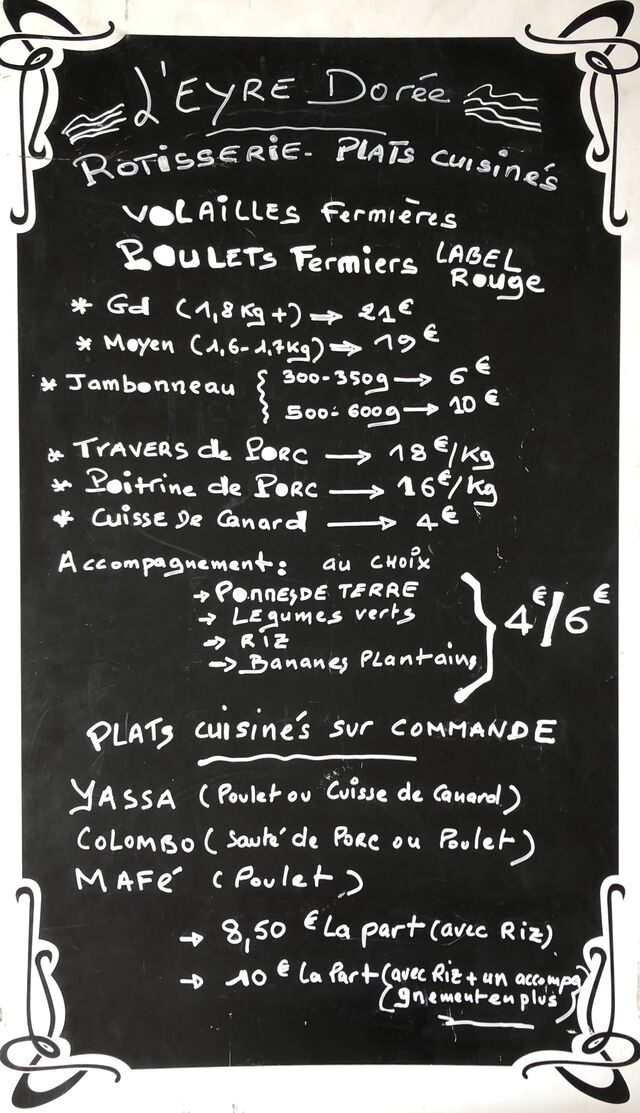 L'EYRE Dorée
ROTISSERIE - PLATS cuisinés
VOLAILLES Fermières
POULETS Fermiers LABEL Rouge
* Gd (1,8 Kg +) → 21€
* Moyen (1,6-1,7Kg) → 19€
* Jambonneau { 300-350g → 6€
500-600g → 10€
* TRAVERS de PORC → 18€/Kg
* Poitrine de PORC → 16€/Kg
* Cuisse De Canard → 4€
Accompagnement : au CHOIX
→ POMMES DE TERRE
→ Légumes verts
→ RIZ
→ Bananes Plantains } 4€/6€
PLATS cuisinés sur COMMANDE
YASSA (Poulet ou Cuisse de Canard)
COLOMBO (Sauté de PORC ou Poulet)
MAFé (Poulet)
→ 8,50 € La part (avec Riz)
→ 10 € La Part (avec Riz + un accompa
gnement en plus)